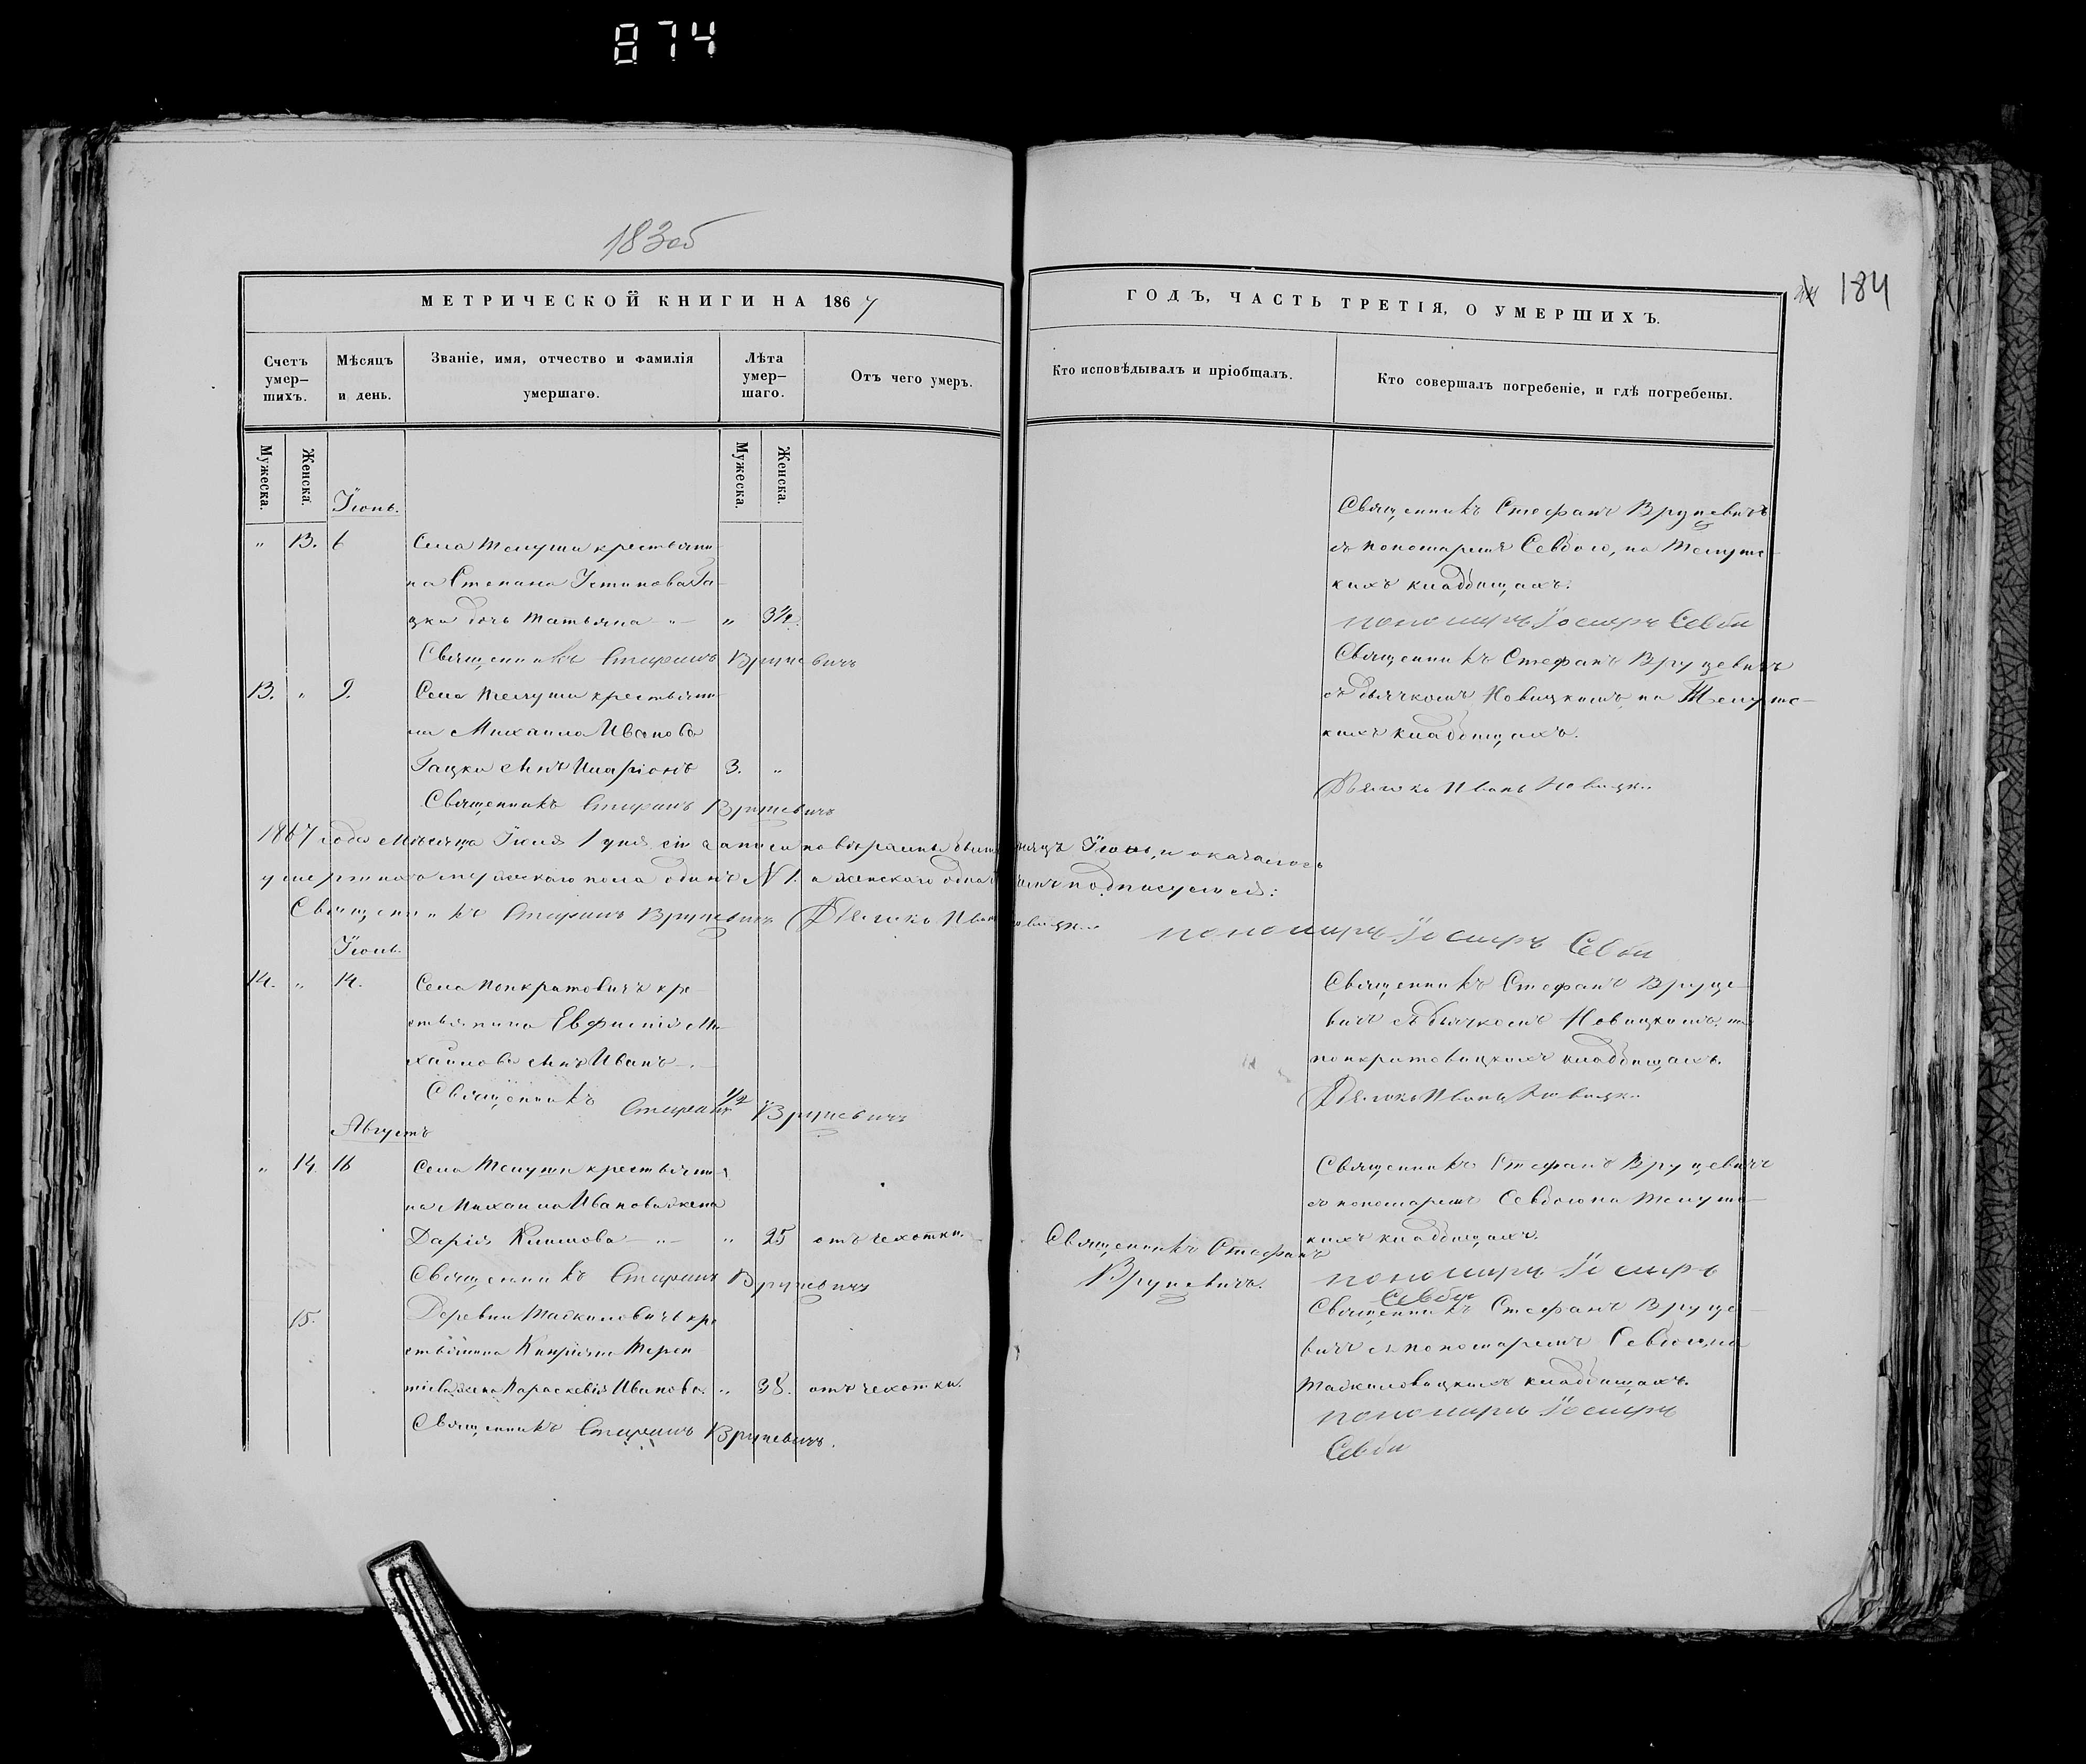 874
183об
184
МЕТРИЧЕСКОЙ КНИГИ НА 1867
ГОДЪ, ЧАСТЬ ТРЕТІЯ, О УМЕРШИХЪ.
Счетъ умер–шихъ.
Мѣсяцъ и день.
Званіе, имя, отчество и фамилія умершаго.
Лѣта умер–шаго.
Отъ чего умеръ.
Кто исповѣдывалъ и пріобщалъ.
Кто совершалъ погребеніе, и гдѣ погребены.
Мужеска.
Женска.
Мужеска.
Женска.
Іюнь.
" 13. 6 Села Телуши крестьяни
на Степана Устинова Га
цка дочь Татьяна " 3½
Священникъ Стефанъ Вруцевичъ
Священникъ Стефанъ Вруцевичъ
съ пономаремъ Севбою, на Телушс
кихъ кладбищахъ.
пономарь Іосифъ Севба
13. " 9. Села Телуши крестьяни
на Михаила Иванова
Гацка сынъ Иларіонъ 3. "
Священникъ Стефанъ Вруцевичъ
Священникъ Стефанъ Вруцевичъ
съ дьячкомъ Новицкимъ, на Телушс
кихъ кладбищахъ.
Дьячко Иванъ Новицки
1867 года мѣсяца Іюля 1 дня сіи записи повѣряемы были Іюнь, и оказалось
умершихъ мужескаго пола одинъ №1. а женскаго одна подписуемся:
Священникъ Стефанъ Вруцевичъ Дьячко Иванъ Новицки
пономарь Іосифъ Севба
Іюль.
14. " 14. Села Понкратовичъ кре
стьянина Евфистія Ми
хайлова сынъ Иванъ ½
Священникъ Стефанъ Вруцевичъ
Священникъ Стефанъ Вруце
вичъ съ дьячкомъ Новицкимъ, на
понкратовицкихъ кладбищахъ.
Дьячко Иванъ Новицки
Августъ
" 14 16 Села Телуши крестьяни
на Михаила Иванова жена
Дарія Климова " 25 отъ чехотки.
Священникъ Стефанъ Вруцевичъ
Священникъ Стефанъ
Вруцевичъ.
Священникъ Стефанъ Вруцевичъ
съ пономаремъ Севбою на Телушс
кихъ кладбищахъ.
пономарь Іосифъ
Севба
15. Деревни Мадкиловичъ кре
стьянина Кипріяна Терен
тіева жена Параскевія Иванова. " 38. отъ чехотки.
Священникъ Стефанъ Вруцевичъ.
Священникъ Стефанъ Вруце
вичъ съ пономаремъ Севбою, на
кладбищахъ.
пономарь Іосифъ
Севба